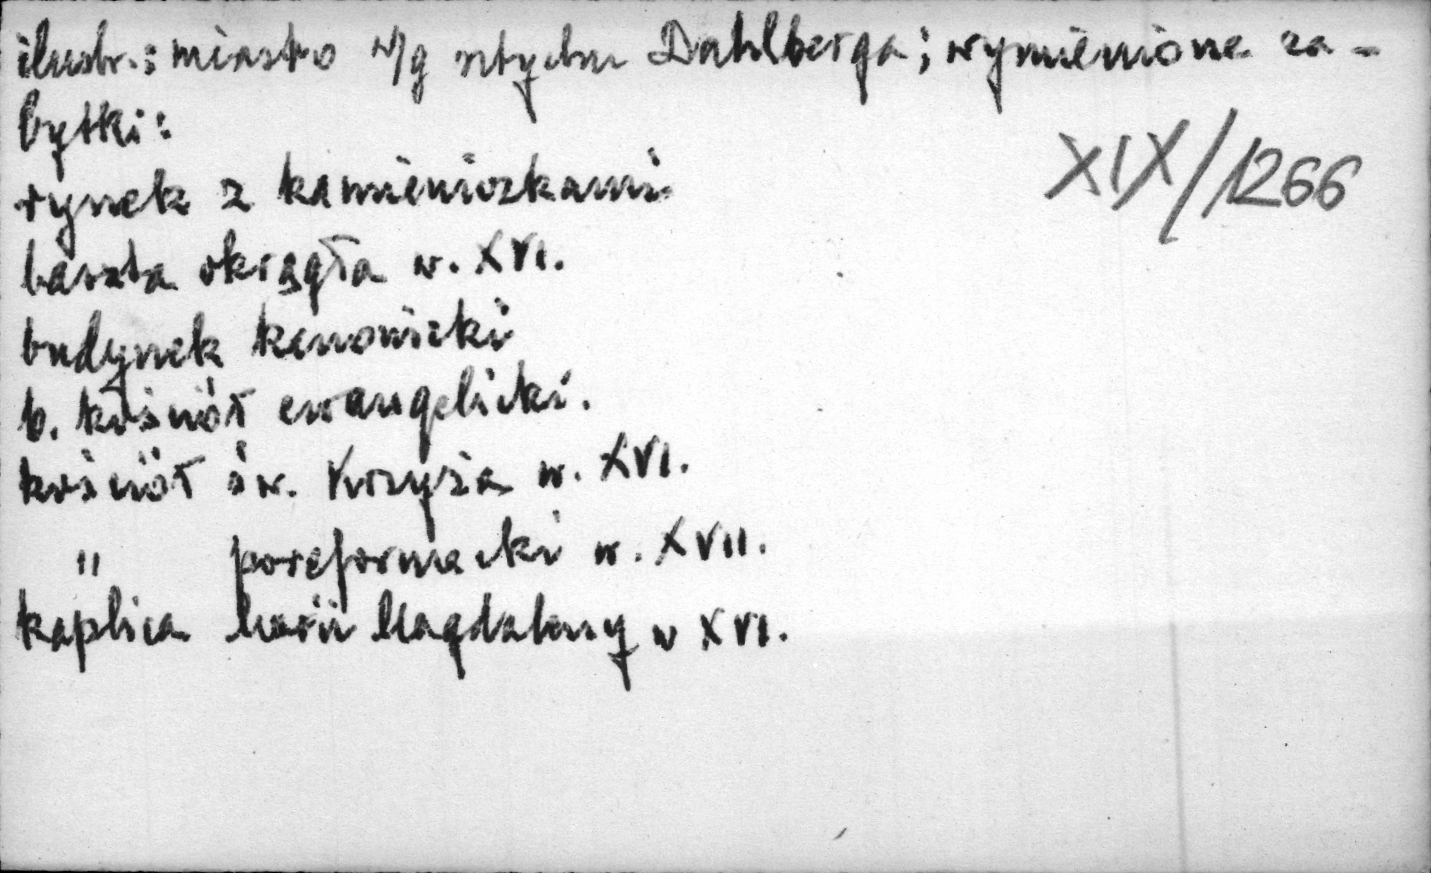 ilustr.: miasto w/g sztychu Dahlberga; wymienione za-
bytki:
XIX/1266
rynek z kamieniczkami
baszta okrągła w. XVI.
budynek kanonicki
b. kościół ewangelicki.
kościół św. Krzyża w. XVI.
" poreformacki w. XVII.
kaplica Marii Magdaleny w XVI.